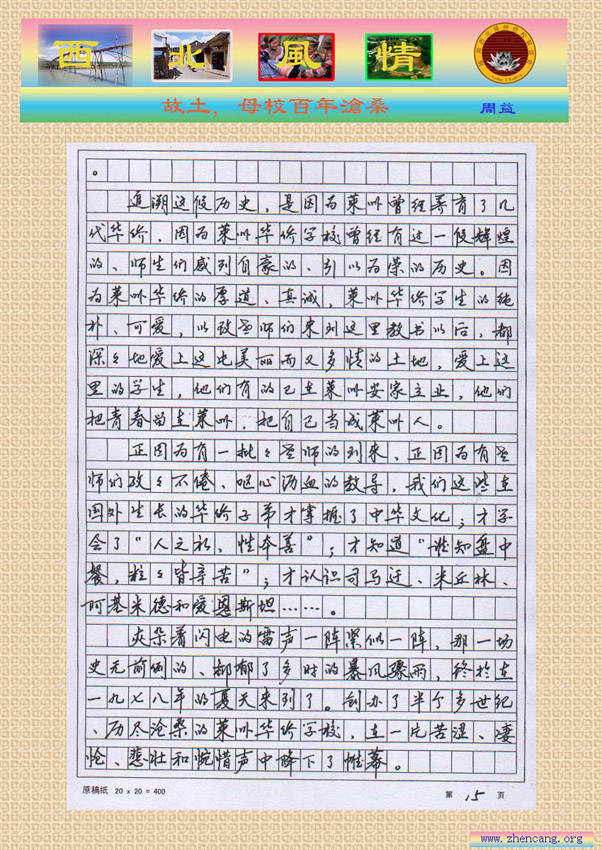 西北風情
故土，母校百年滄桑 周益
。
追溯这段历史，是因为莱州曾经养育了几
代华侨，因为莱州华侨学校曾经有过一段辉煌
的、师生们感到自豪的、引以为荣的历史。因
为莱州华侨的厚道、真诚，莱州华侨学生的纯
朴、可爱，以致老师们来到这里教书以后，都
深々地爱上这屯美丽而又多情的土地，爱上这
里的学生，他们有的已在莱州安家立业，他们
把青春留在莱州，把自己当成莱州人。
正因为有一批々老师的到来、正因为有老
师们孜々不倦、呕心沥血的教导，我们这些在
国外生长的华侨子弟才掌握了中华文化；才学
会了“人之初，性本善”；才知道“谁知盘中
餐，粒々皆辛苦”；才认识司马迁、米丘林、
阿基米德和爱恩斯坦……。
夹杂着闪电的雷声一阵紧似一阵，那一场
史无前例的、郁郁了多时的暴风骤雨，终于在
一九七八年的夏天来到了。创办了半个多世纪
、历尽沧桑的莱州华侨学校，在一片苦涩、凄
怆、悲壮和惋惜声中降下了帷幕。
原稿纸 20 x 20 = 400 第 15 页
www.zhencang.org